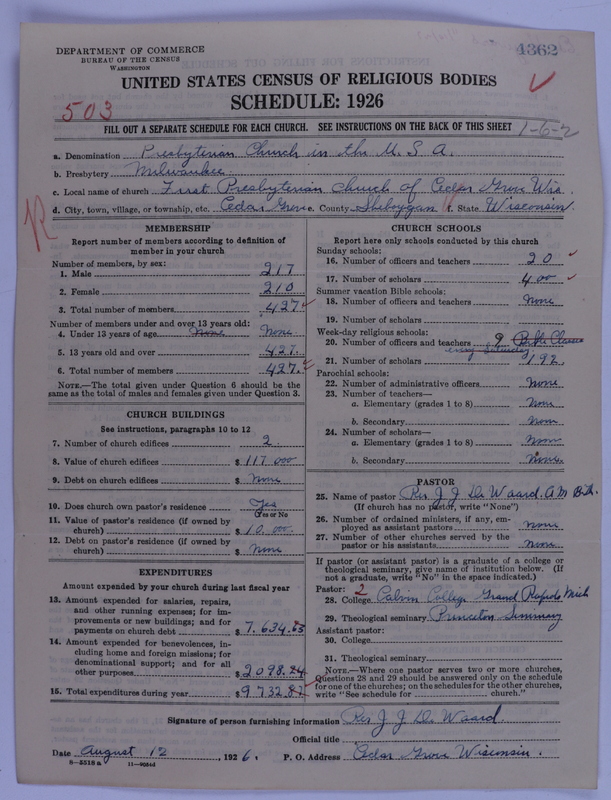 DEPARTMENT OF COMMERCE
BUREAU OF THE CENSUS
WASHINGTON
4362
UNITED STATES CENSUS OF RELIGIOUS BODIES
SCHEDULE: 1926
503
FILL OUT A SEPARATE SCHEDULE FOR EACH CHURCH. SEE INSTRUCTIONS ON THE BACK OF THIS SHEET
1-6-2
a. Denomination Presbyterian Church in the U. S. A.
b. Presbytery Milwaukee
c. Local name of church First Presbyterian Church of Cedar Grove Wis.
d. City, town, village, or township, etc. Cedar Grove e. County Sheboygan f. State Wisconsin
R
MEMBERSHIP
Report number of members according to definition of
member in your church
Number of members, by sex:
1. Male 217
2. Female 210
3. Total number of members 427
Number of members under and over 13 years old:
4. Under 13 years of age None None
5. 13 years old and over 427
6. Total number of members 427
NOTE.—The total given under Question 6 should be the
same as the total of males and females given under Question 3.
CHURCH BUILDINGS
See instructions, paragraphs 10 to 12
7. Number of church edifices 2
8. Value of church edifices $ 117 000
9. Debt on church edifices $ None
10. Does church own pastor's residence Yes
(Yes or No
11. Value of pastor's residence (if owned by
church) $ 10.000
12. Debt on pastor's residence (if owned by
church) $ None
EXPENDITURES
Amount expended by your church during last fiscal year
13. Amount expended for salaries, repairs,
and other running expenses; for im-
provements or new buildings; and for
payments on church debt $ 7.634.
14. Amount expended for benevolences, in-
cluding home and foreign missions; for
denominational support; and for all
other purposes $ 2098.24
15. Total expenditures during year $ 9732.
CHURCH SCHOOLS
Report here only schools conducted by this church
Sunday schools:
16. Number of officers and teachers 20
17. Number of scholars 400
Summer vacation Bible schools:
18. Number of officers and teachers None
19. Number of scholars
Week-day religious schools:
20. Number of officers and teachers 9 Bible Classes
every Saturday
21. Number of scholars 192
Parochial schools:
22. Number of administrative officers None
23. Number of teachers—
a. Elementary (grades 1 to 8) None
b. Secondary None
24. Number of scholars—
a. Elementary (grades 1 to 8) None
b. Secondary None
PASTOR
25. Name of pastor Rev. J. J. De Waard. A M
(If church has no pastor, write "None")
26. Number of ordained ministers, if any, em-
ployed as assistant pastors none
27. Number of other churches served by the
pastor or his assistants none
If pastor (or assistant pastor) is a graduate of a college or
theological seminary, give name of institution below. (If
not a graduate, write "No" in the space indicated.)
Pastor: 2
28. College Calvin College Grand Rapids Mich
29. Theological seminary Princeton Seminary
Assistant pastor:
30. College
31. Theological seminary
NOTE.—Where one pastor serves two or more churches,
Questions 28 and 29 should be answered only on the schedule
for one of the churches; on the schedules for the other churches,
write "See schedule for church."
Signature of person furnishing information Rev J. J De Waard.
Official title
Date August 12, 1926. P. O. Address Cedar Grove Wisconsin.